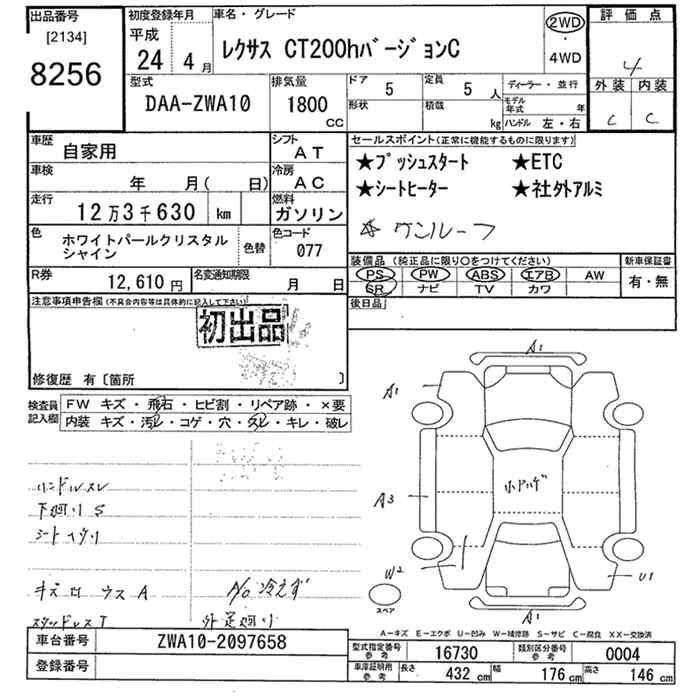 出品番号
[2134]
8256
初度登録年月
平成
24年 4月
車名・グレード
レクサス CT200hバージョンC
2WD
・
4WD
評価点
4
外装 内装
C C
型式
DAA-ZWA10
排気量
1800
CC
ドア 5
定員 5 人
形状
積載 kg
ディーラー・並行
モデル年式 年
ハンドル 左・右
車歴
自家用
シフト
AT
車検
年 月( 日)
冷房
AC
走行
12万3千630 km
燃料
ガソリン
色
ホワイトパールクリスタルシャイン
色替
色コード
077
R券
12,610円
名変通知期限
月 日
セールスポイント(正常に機能するものに限ります)
★プッシュスタート ★ETC
★シートヒーター ★社外アルミ
☆ワンルーフ
装備品 (純正品に限り○をつけてください)
PS PW ABS エアB AW
SR ナビ TV カワ
新車保証書
有・無
後日品
注意事項申告欄(不具合内容等は具体的に記入して下さい)
初出品
修復歴 有〔箇所 〕
検査員記入欄
FW キズ・飛石・ヒビ割・リペア跡・×要
内装 キズ・汚レ・コゲ・穴・スレ・キレ・破レ
ハンドルスレ
下廻りS
キズ A
外足廻り
A1
A1
A3
W2
U1
A1
スペア
A-キズ E-エクボ U-凹み W-補修跡 S-サビ C-腐食 XX-交換済
車台番号
ZWA10-2097658
登録番号
型式指定番号参考
16730
類別区分番号参考
0004
車庫証明用参考
長さ 432 cm
幅 176 cm
高さ 146 cm